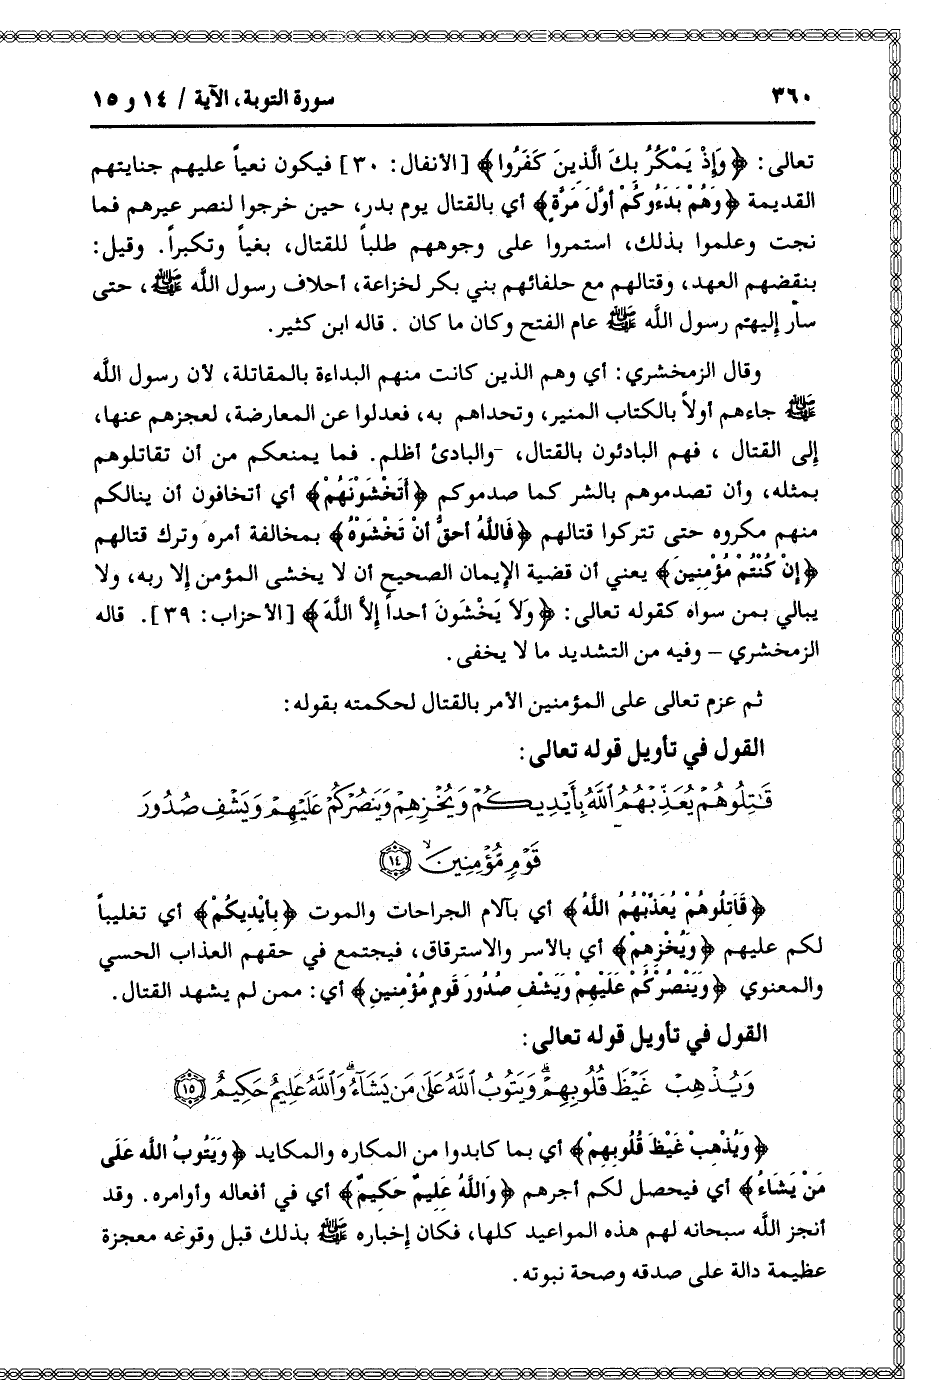 ٣٦٠ سورة التوبة، الآية / ١٤ و ١٥
تعالى: ﴿وَإِذْ يَمْكُرُ بِكَ الَّذِينَ كَفَرُوا﴾ [الأنفال: ٣٠] فيكون نعياً عليهم جنايتهم
القديمة ﴿وَهُمْ بَدَءُوكُمْ أوَّلَ مَرَّةٍ﴾ أي بالقتال يوم بدر، حين خرجوا لنصر عيرهم فما
نجت وعلموا بذلك، استمروا على وجوههم طلباً للقتال، بغياً وتكبراً. وقيل:
بنقضهم العهد، وقتالهم مع حلفائهم بني بكر لخزاعة، أحلاف رسول اللَّه ﷺ، حتى
سار إليهم رسول اللَّه ﷺ عام الفتح وكان ما كان . قاله ابن كثير.
وقال الزمخشري: أي وهم الذين كانت منهم البداءة بالمقاتلة، لأن رسول اللَّه
ﷺ جاءهم أولاً بالكتاب المنير، وتحداهم به، فعدلوا عن المعارضة، لعجزهم عنها،
إلى القتال ، فهم البادئون بالقتال، والبادئ أظلم. فما يمنعكم من أن تقاتلوهم
بمثله، وأن تصدموهم بالشر كما صدموكم ﴿أَتَخْشَوْنَهُمْ﴾ أي أتخافون أن ينالكم
منهم مكروه حتى تتركوا قتالهم ﴿فَاللَّهُ أحَقُّ أنْ تَخْشَوْهُ﴾ بمخالفة أمره وترك قتالهم
﴿إنْ كُنْتُمْ مُؤْمِنِينَ﴾ يعني أن قضية الإيمان الصحيح أن لا يخشى المؤمن إلا ربه، ولا
يبالي بمن سواه كقوله تعالى: ﴿وَلاَ يَخْشَونَ أحداً إلاَّ اللَّهَ﴾ [الأحزاب: ٣٩]. قاله
الزمخشري – وفيه من التشديد ما لا يخفى.
ثم عزم تعالى على المؤمنين الأمر بالقتال لحكمته بقوله:
القول في تأويل قوله تعالى:
قَٰتِلُوهُمْ يُعَذِّبْهُمُ ٱللَّهُ بِأَيْدِيكُمْ وَيُخْزِهِمْ وَيَنصُرْكُمْ عَلَيْهِمْ وَيَشْفِ صُدُورَ
قَوْمٍ مُّؤْمِنِينَ ۙ ﴿١٤﴾
﴿قَاتِلُوهُمْ يُعَذِّبْهُمُ اللَّهُ﴾ أي بآلام الجراحات والموت ﴿بِأَيْدِيكُمْ﴾ أي تغليباً
لكم عليهم ﴿وَيُخْزِهِمْ﴾ أي بالأسر والاسترقاق، فيجتمع في حقهم العذاب الحسي
والمعنوي ﴿وَيَنْصُرْكُمْ عَلَيْهِمْ وَيَشْفِ صُدُورَ قَومٍ مُؤْمِنينِ﴾ أي: ممن لم يشهد القتال.
القول في تأويل قوله تعالى:
وَيُذْهِبْ غَيْظَ قُلُوبِهِمْ ۗ وَيَتُوبُ ٱللَّهُ عَلَىٰ مَن يَشَآءُ ۗ وَٱللَّهُ عَلِيمٌ حَكِيمٌ ﴿١٥﴾
﴿وَيُذْهِبْ غَيْظَ قُلُوبِهِمْ﴾ أي بما كابدوا من المكاره والمكايد ﴿وَيَتُوبُ اللَّه عَلَى
مَنْ يَشَاءُ﴾ أي فيحصل لكم أجرهم ﴿وَاللَّهُ عَلِيمٌ حَكِيمٌ﴾ أي في أفعاله وأوامره. وقد
أنجز اللَّه سبحانه لهم هذه المواعيد كلها، فكان إخباره ﷺ بذلك قبل وقوعه معجزة
عظيمة دالة على صدقه وصحة نبوته.